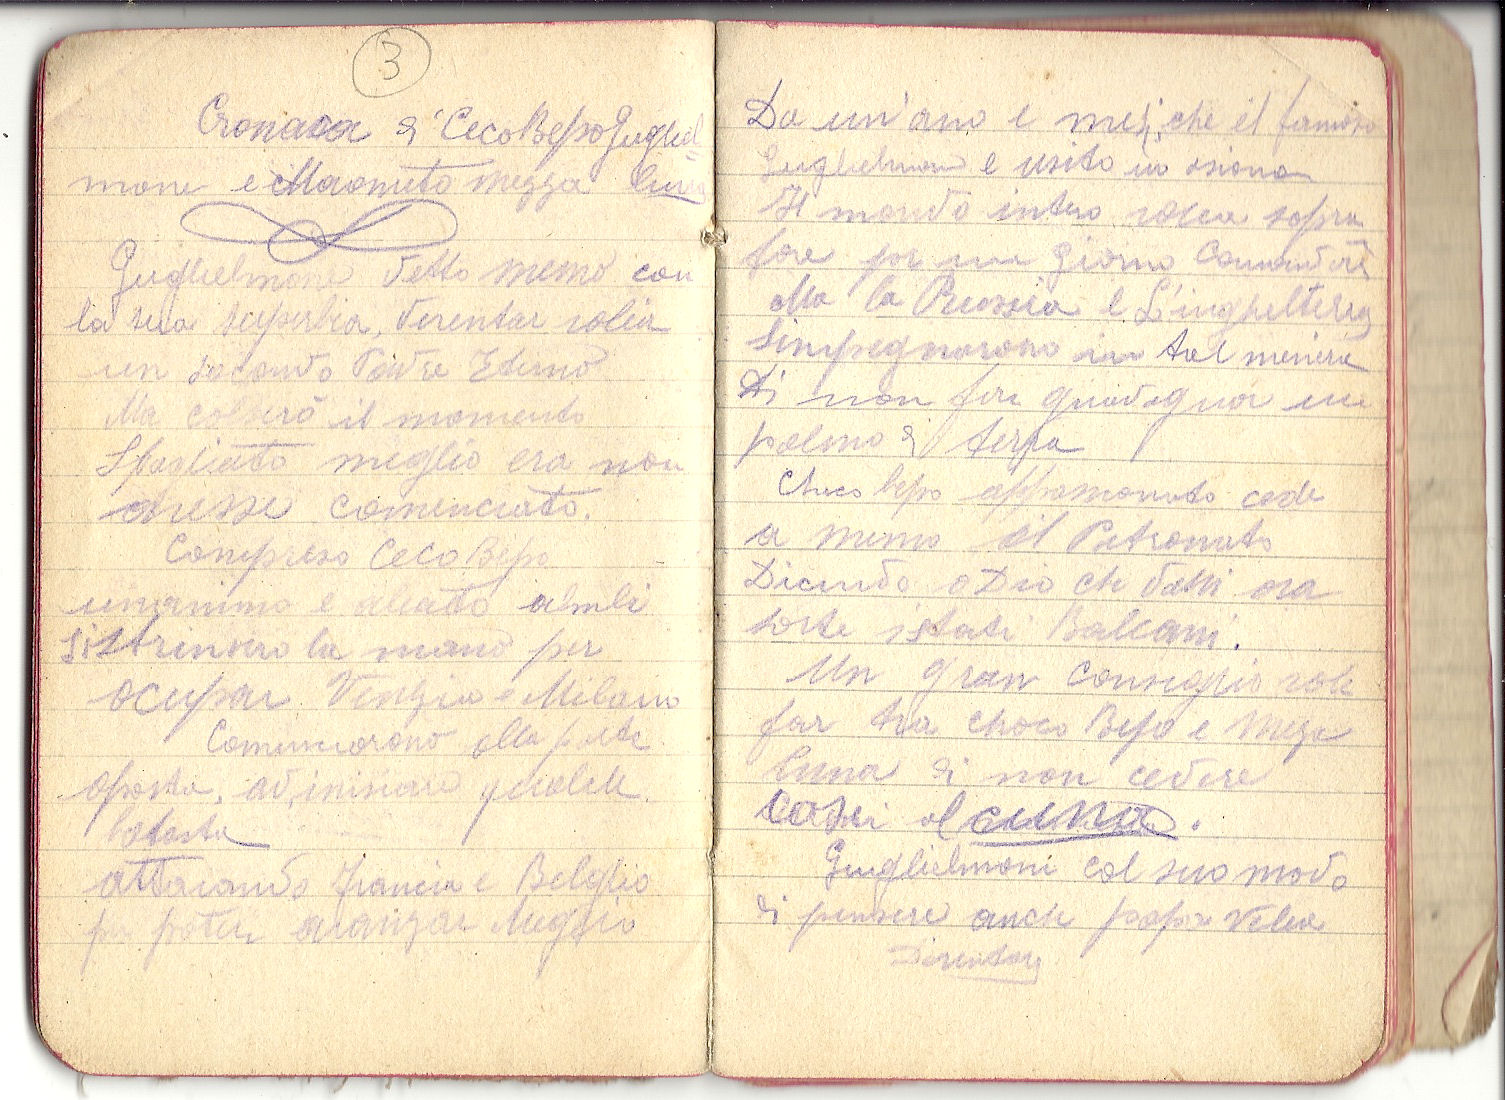 3
Cronaca di Ceco Bepo Gugliel=
mone e Maometo mezza luna
Guglielmone detto memo con
la sua superbia, Verentar volea
un secondo Padre Eterno
Ma colserò il momento
Sbagliato meglio era non
avesse comenciato.
Compreso Ceco Bepo
unanimo e aleato ambi
sistrinsero la mano per
ocupar Venezia e Milano
Cominciorono alla parte
oposta, ad, iniziare qualche
batosta
attacando Francia e Belglio
p poter avanzar Meglio
Da un'ano e mesi, che il famoso
Guglielmon e usito in
Il mondo intero volea sopra
fare per un giorno Comandare
Ma la Russia e L'inghelterra
Simpegnorono in tal meniera
Di non fare guadagnar un
palmo di terra
Checo bepo appasionato cede
a memo il Patronato
Dicendo o Dio che vatti ora
sorte istati Balcani.
Un gran Conseglio vole
far tra checo Bepo e Meza
luna di non cedere
cossi al cuna.
Guglielmoni col suo modo
di pensare anche papa Volea
Diventare